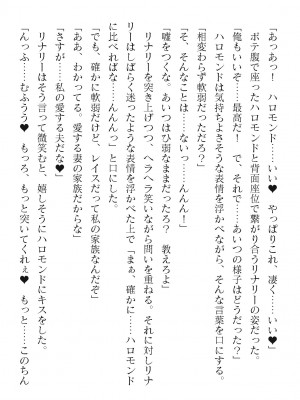 「あっあっ！　ハロモンド……いい♥　やっぱりこれ、凄く……いい♥」
「俺もいいぞ……最高だ！　で、それで……あいつの様子はどうだった？」
ボテ腹で座ったハロモンドと背面座位で繋がり合うリナリーの姿だった。
ハロモンドは気持ちよさそうな表情を浮かべながら、そんな言葉を口にする。
「相変わらず軟弱だっただろ？」
「そ、そんなことは……ないっ……んんんっ！」
「嘘をつくな。あいつはひ弱なままだったろ？　教えろよ」
リナリーを突き上げつつ、ヘラヘラ笑いながら問いを重ねる。それに対しリナ
リーはしばらく迷ったような表情を浮かべた上で「まぁ、確かに……ハロモンド
に比べればな……んんんっ」と口にした。
「でも、確かに軟弱だけど、レイズだって私の家族なんだぞ」
「ああ、わかってる。愛する妻の家族だからな」
「さすが……私の愛する夫だな♥」
リナリーはそう言って微笑むと、嬉しそうにハロモンドにキスをした。
「んっふ……むふうう♥　もっろ、もっと突いてくれぇ♥　もっと……このちん